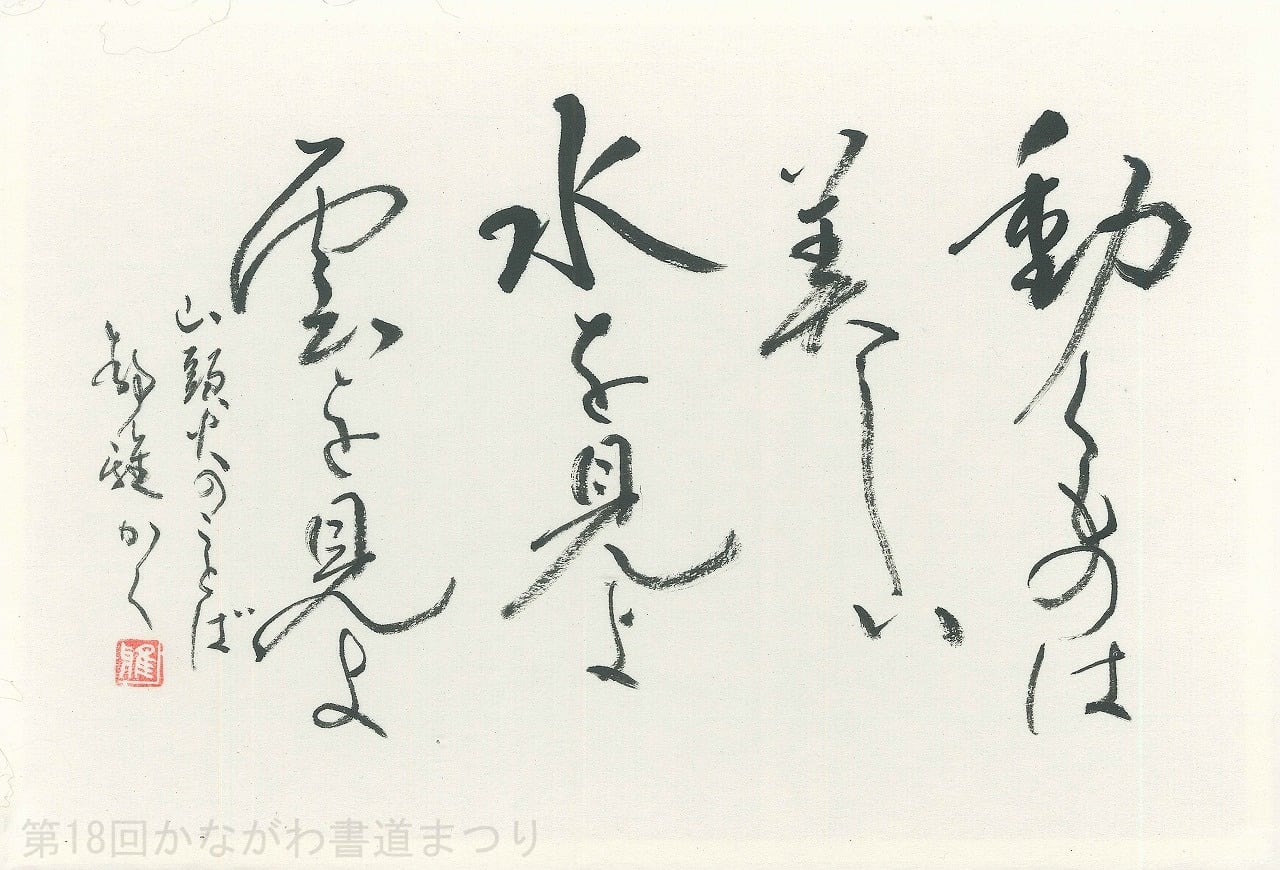 動くものは
美しい
水を見よ
雲を見よ
山頭火のことば
静雅かく
雅
第18回かながわ書道まつり